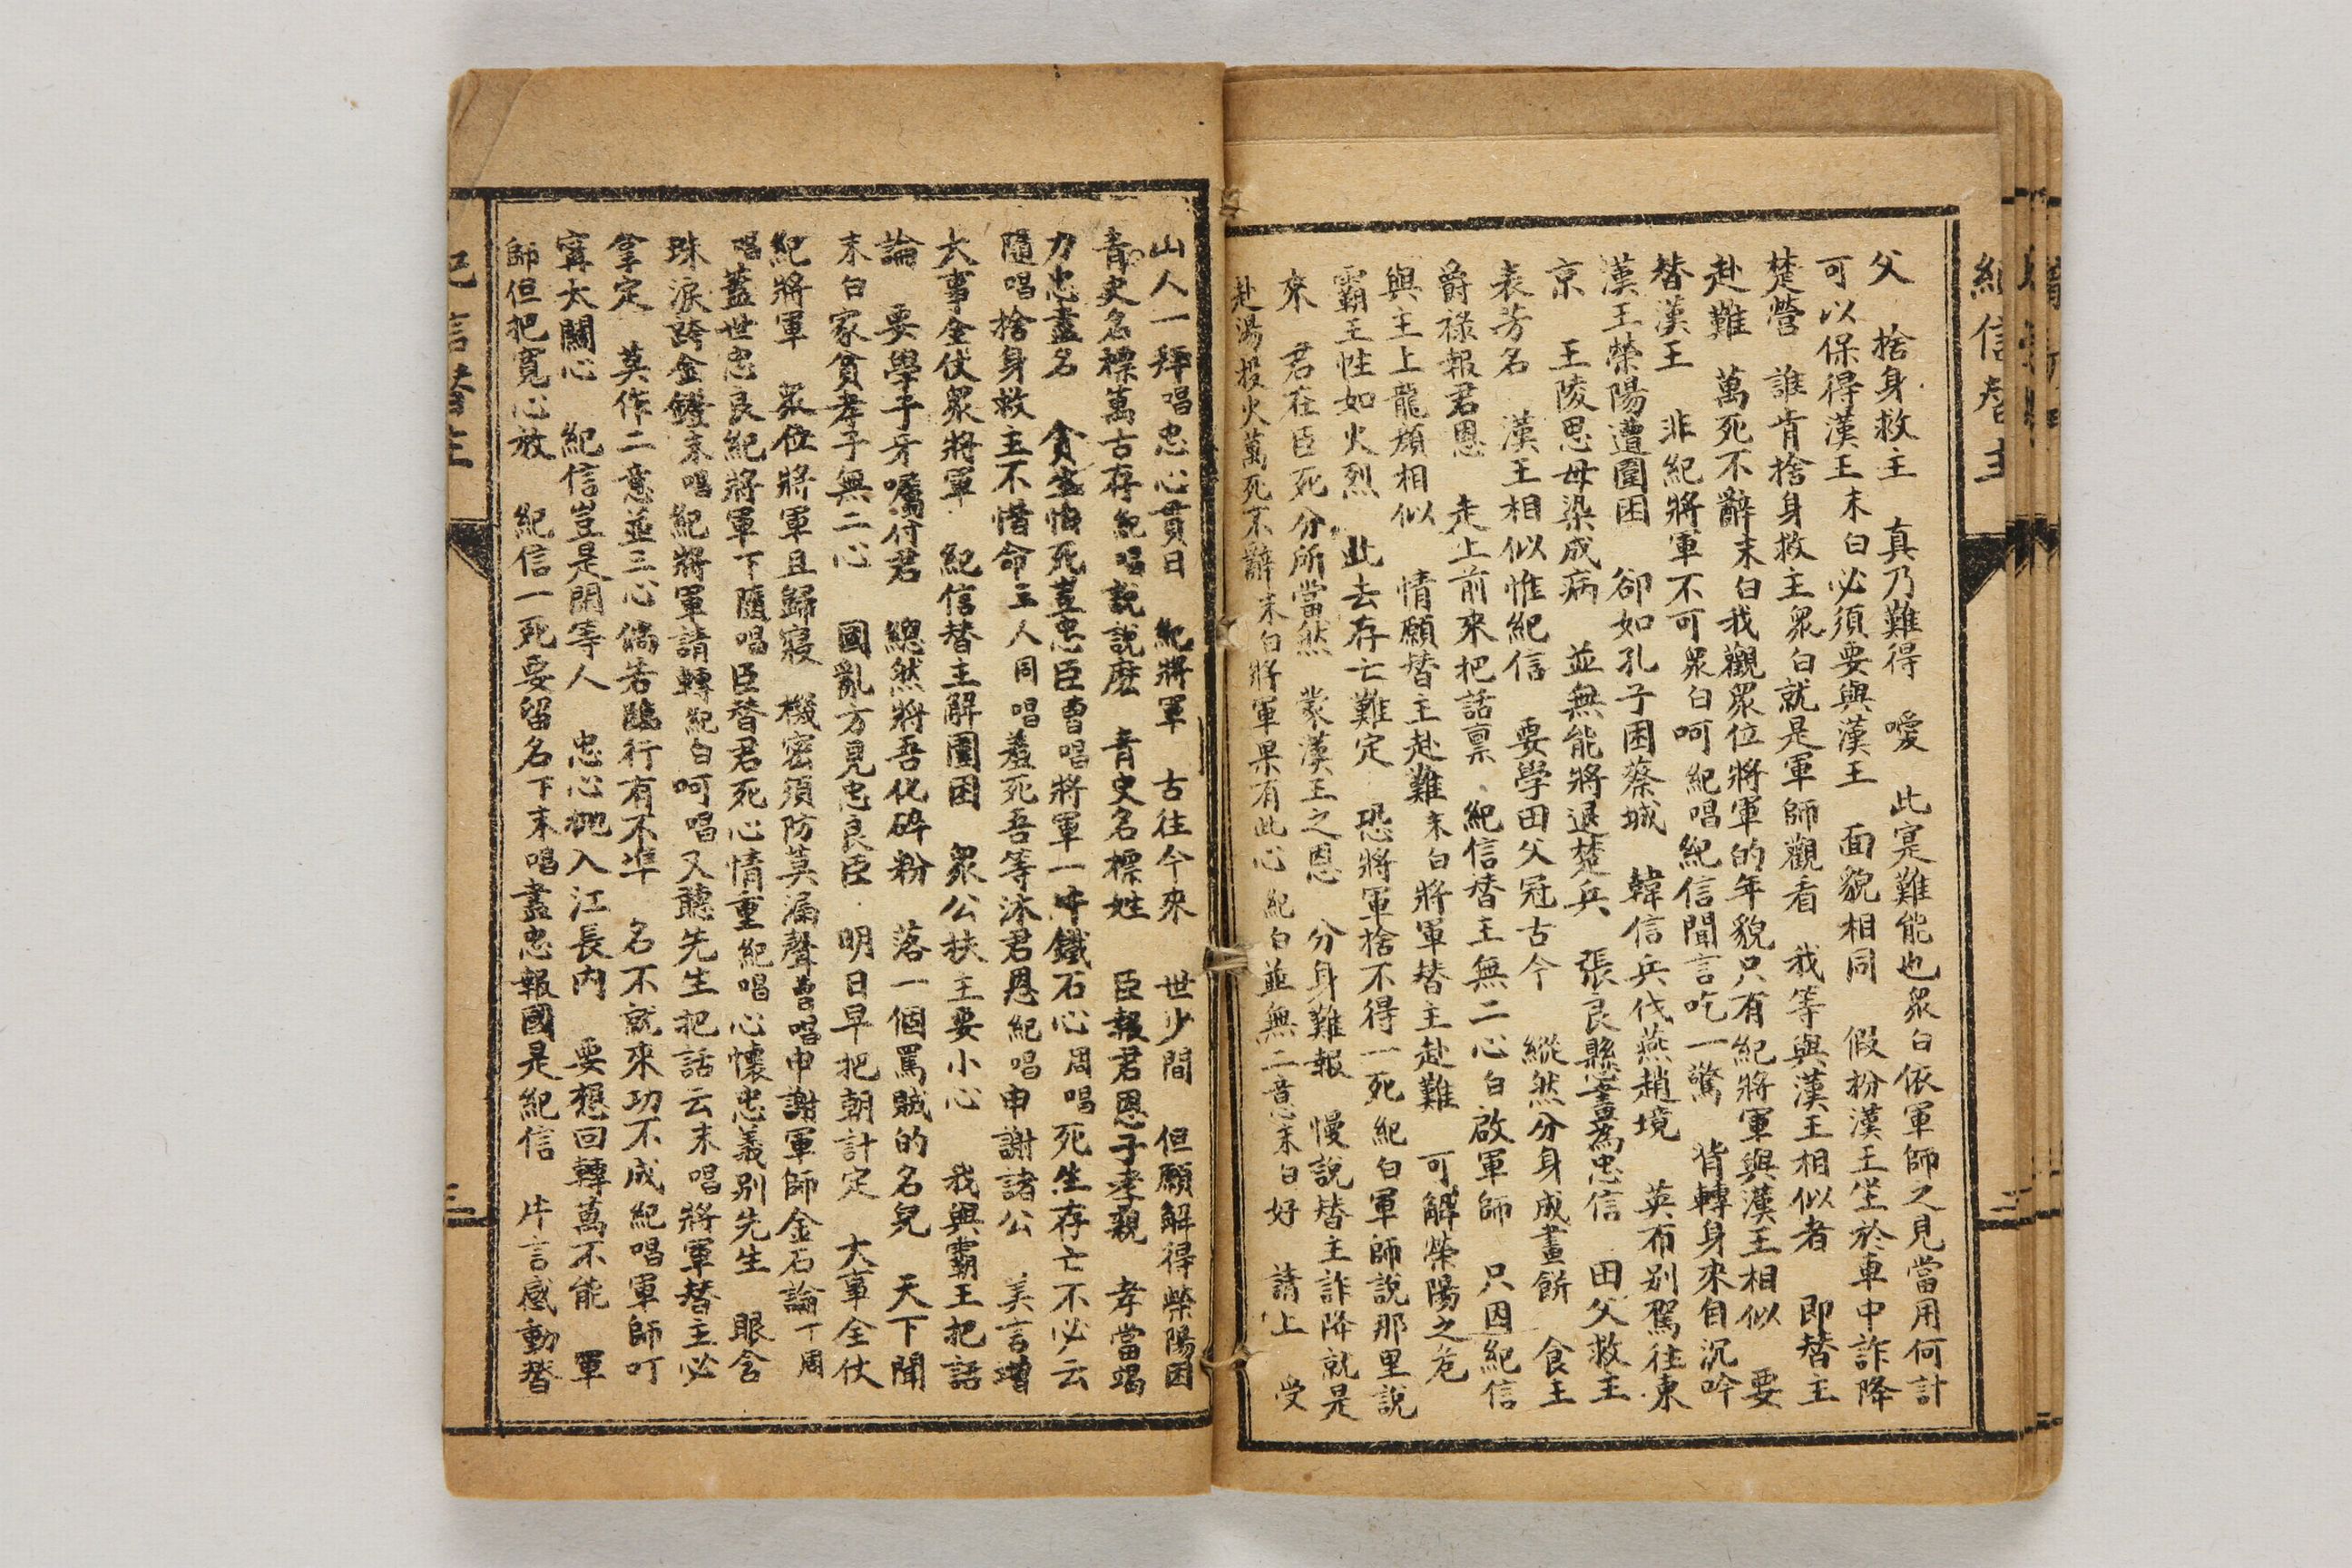 紀信替主
二
父 捨身救主 真乃難得 噯 此寔難能也眾白依軍師之見當用何計
可以保得漢王末白必須要與漢王 面貌相同 假扮漢王坐於車中詐降
楚營 誰肯捨身救主眾白就是軍師觀看 我等與漢王相似者 即替主
赴難 萬死不辭末白我觀眾位將軍的年貌只有紀將軍與漢王相似 要
替漢王 非紀將軍不可眾白呵紀唱紀信聞言吃一驚 背轉身來自沉吟
漢王榮陽遭圍困 卻如孔子困蔡城 韓信兵伐燕趙境 英布別駕往東
京 王陵思母染成病 並無能將退楚兵 張良懸書為忠信 田父救王
表芳名 漢王相似惟紀信 要學田父冠古今 縱然分身成畫餅 食主
爵祿報君恩 走上前來把話稟 紀信替主無二心白啟軍師 只因紀信
與主上龍顏相似 情願替主赴難末白將軍替主赴難 可解榮陽之危
霸王性如火烈 此去存亡難定 恐將軍捨不得一死紀白軍師說那里說
來 君在臣死分所當然 蒙漢王之恩 分身難報 慢說替主詐降就是
赴湯投火萬死不辭末白將軍果有此心紀白並無二意末白好 請上 受
山人一拜唱忠心貫日 紀將軍 古往今來 世少間 但願解得榮陽困
青史名標萬古存紀唱說說麽 青史名標姓 臣報君恩子孝親 孝當竭
力忠盡名 貪生怕死豈忠臣曹唱將軍一片鐵石心周唱死生存亡不必云
隨唱捨身救主不惜命三人同唱羞死吾等沐君恩紀唱申謝諸公 美言增
大事全伏眾將軍 紀信替主解圍困 眾公扶主要小心 我與霸王把話
論 要學子牙囑付君 總然將吾化碎粉 落一個罵賊的名兒 天下聞
末白家貧孝子無二心 國亂方見忠良臣 明日早把朝計定 大事全伏
紀將軍 眾位將軍且歸寢 機密須防莫漏聲曹唱申謝軍師金石論下周
唱蓋世忠良紀將軍下隨唱臣替君死心情重紀唱心懷忠義別先生 眼含
珠淚跨金鐙末唱紀將軍請轉紀白呵唱又聽先生把話云末唱將軍替主必
拿定 莫作二意並三心倘若臨行有不準 名不就來功不成紀唱軍師叮
寧太關心 紀信豈是閒等人 忠心桃入江長內 要想回轉萬不能 軍
師但把寬心放 紀信一死要留名下末唱盡忠報國是紀信 片言感動替
紀信替主
三